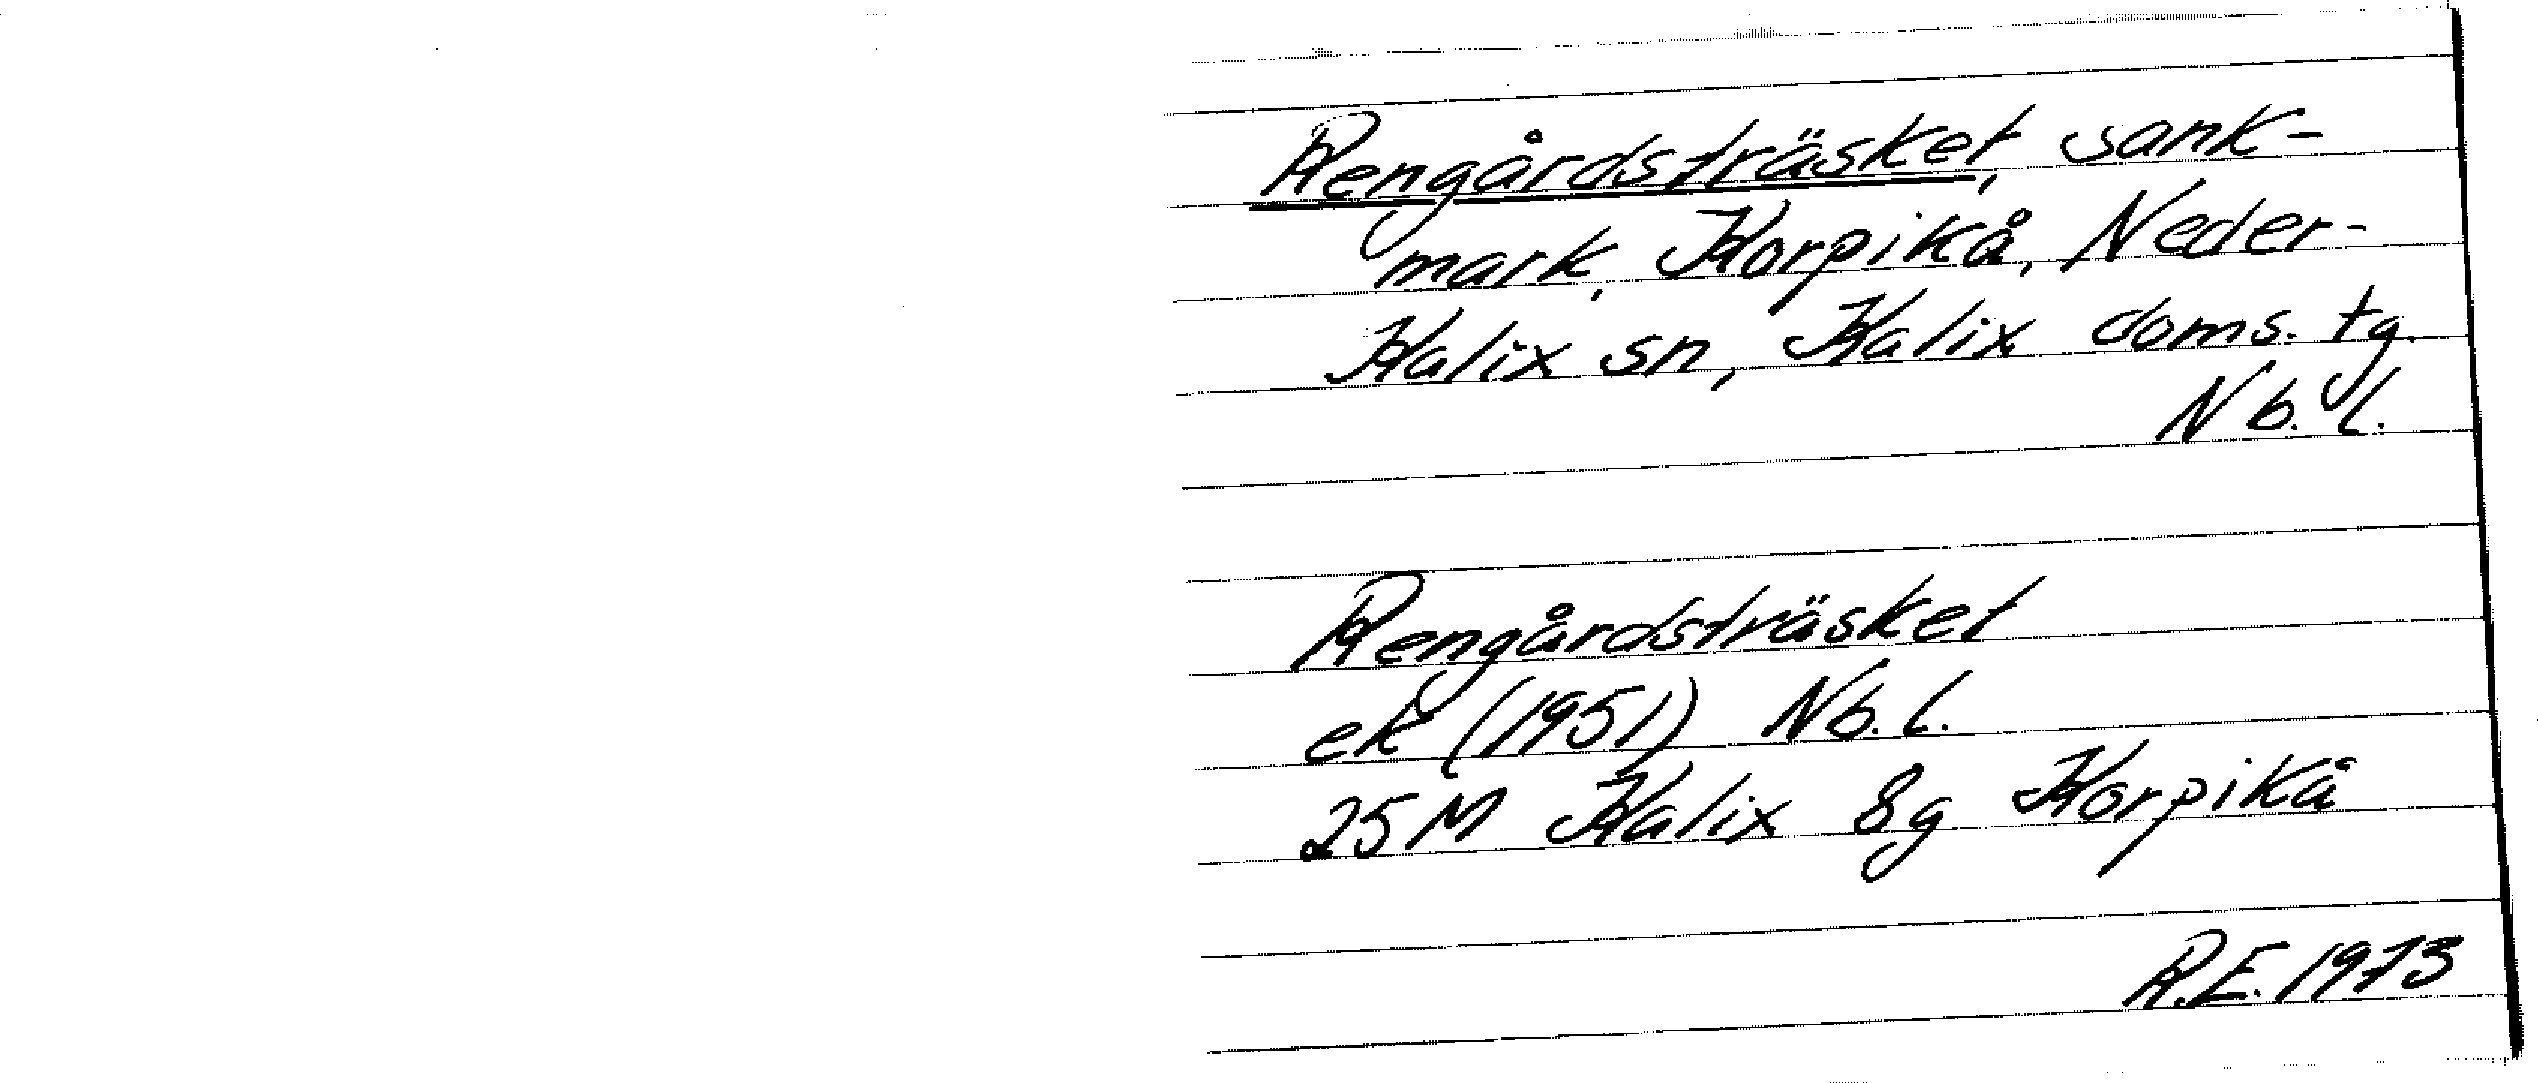 Rengårdsträsket, sank-
mark, Korpikå, Neder-
Kalix sn, Kalix doms. tg.
Nb. l.
Rengårdsträsket
ek (1951) Nb. l.
25M Kalix 8g Korpikå
R.E. 1973